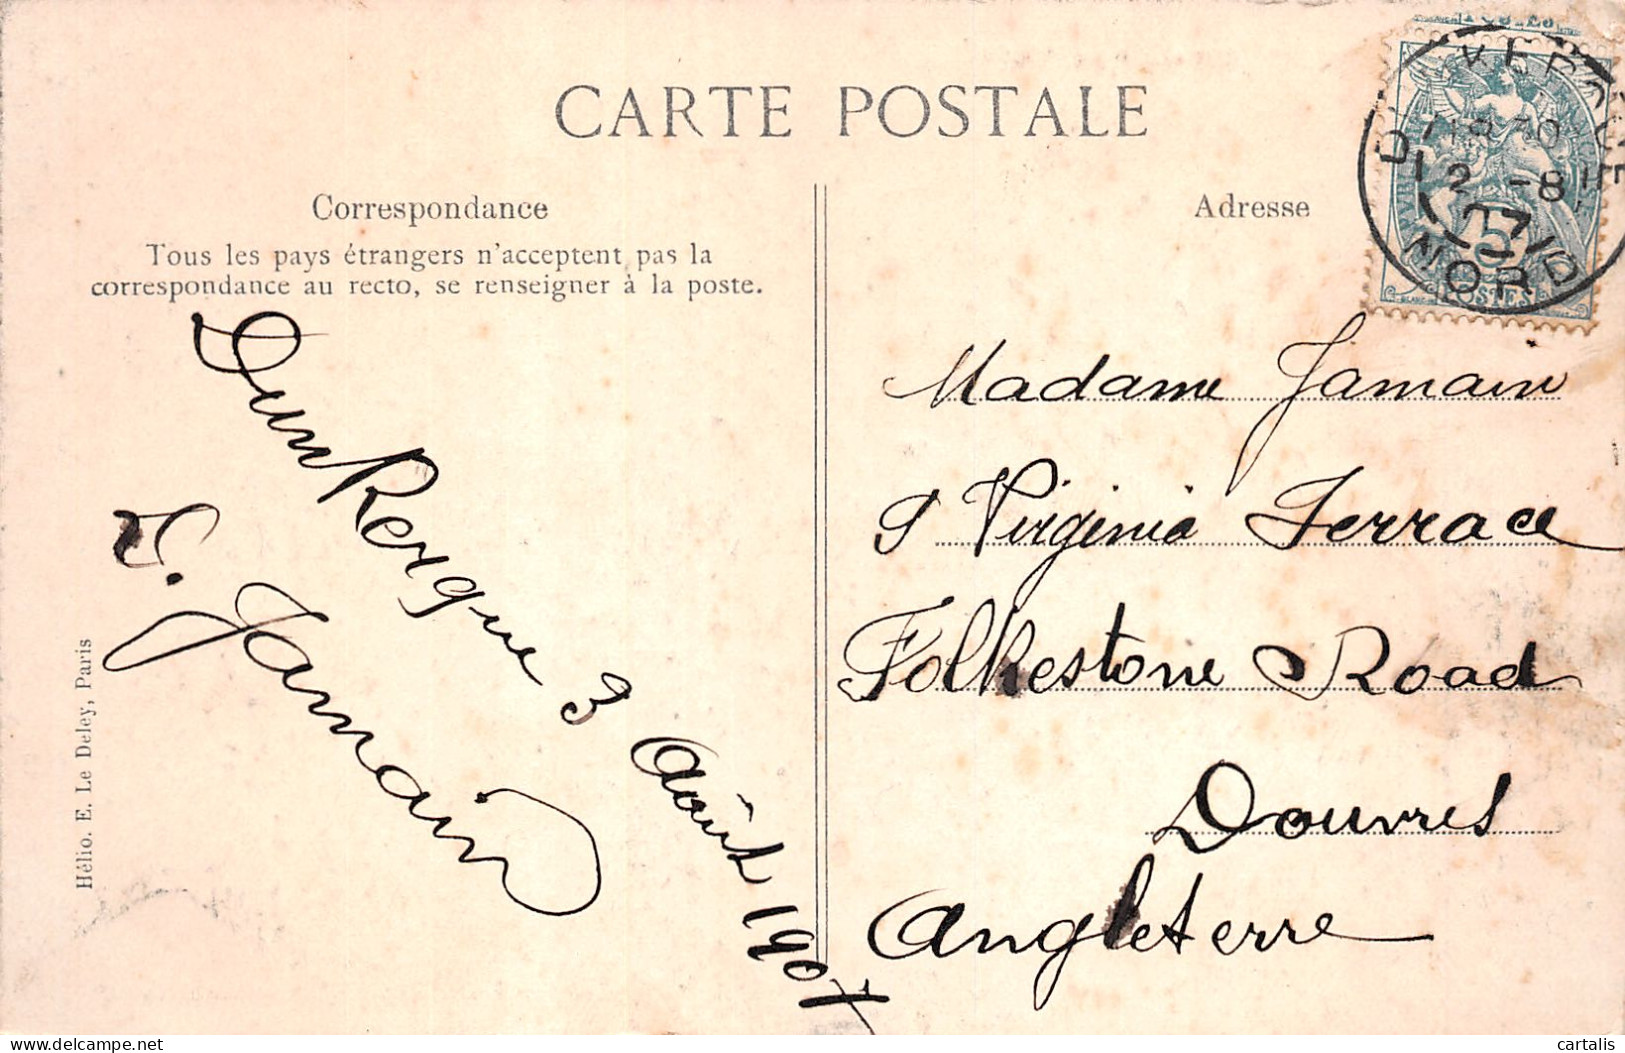 CARTE POSTALE
Correspondance
Tous les pays étrangers n'acceptent pas la
correspondance au recto, se renseigner à la poste.
Adresse
DunKerque 3 Août 1907
Jamain
Madame Jamain
Virginia Terrace
Folkestone Road
Douvres
Angleterre
Hélio. E. Le Deley, Paris
POSTES
NORD
cartalis
delcampe.net